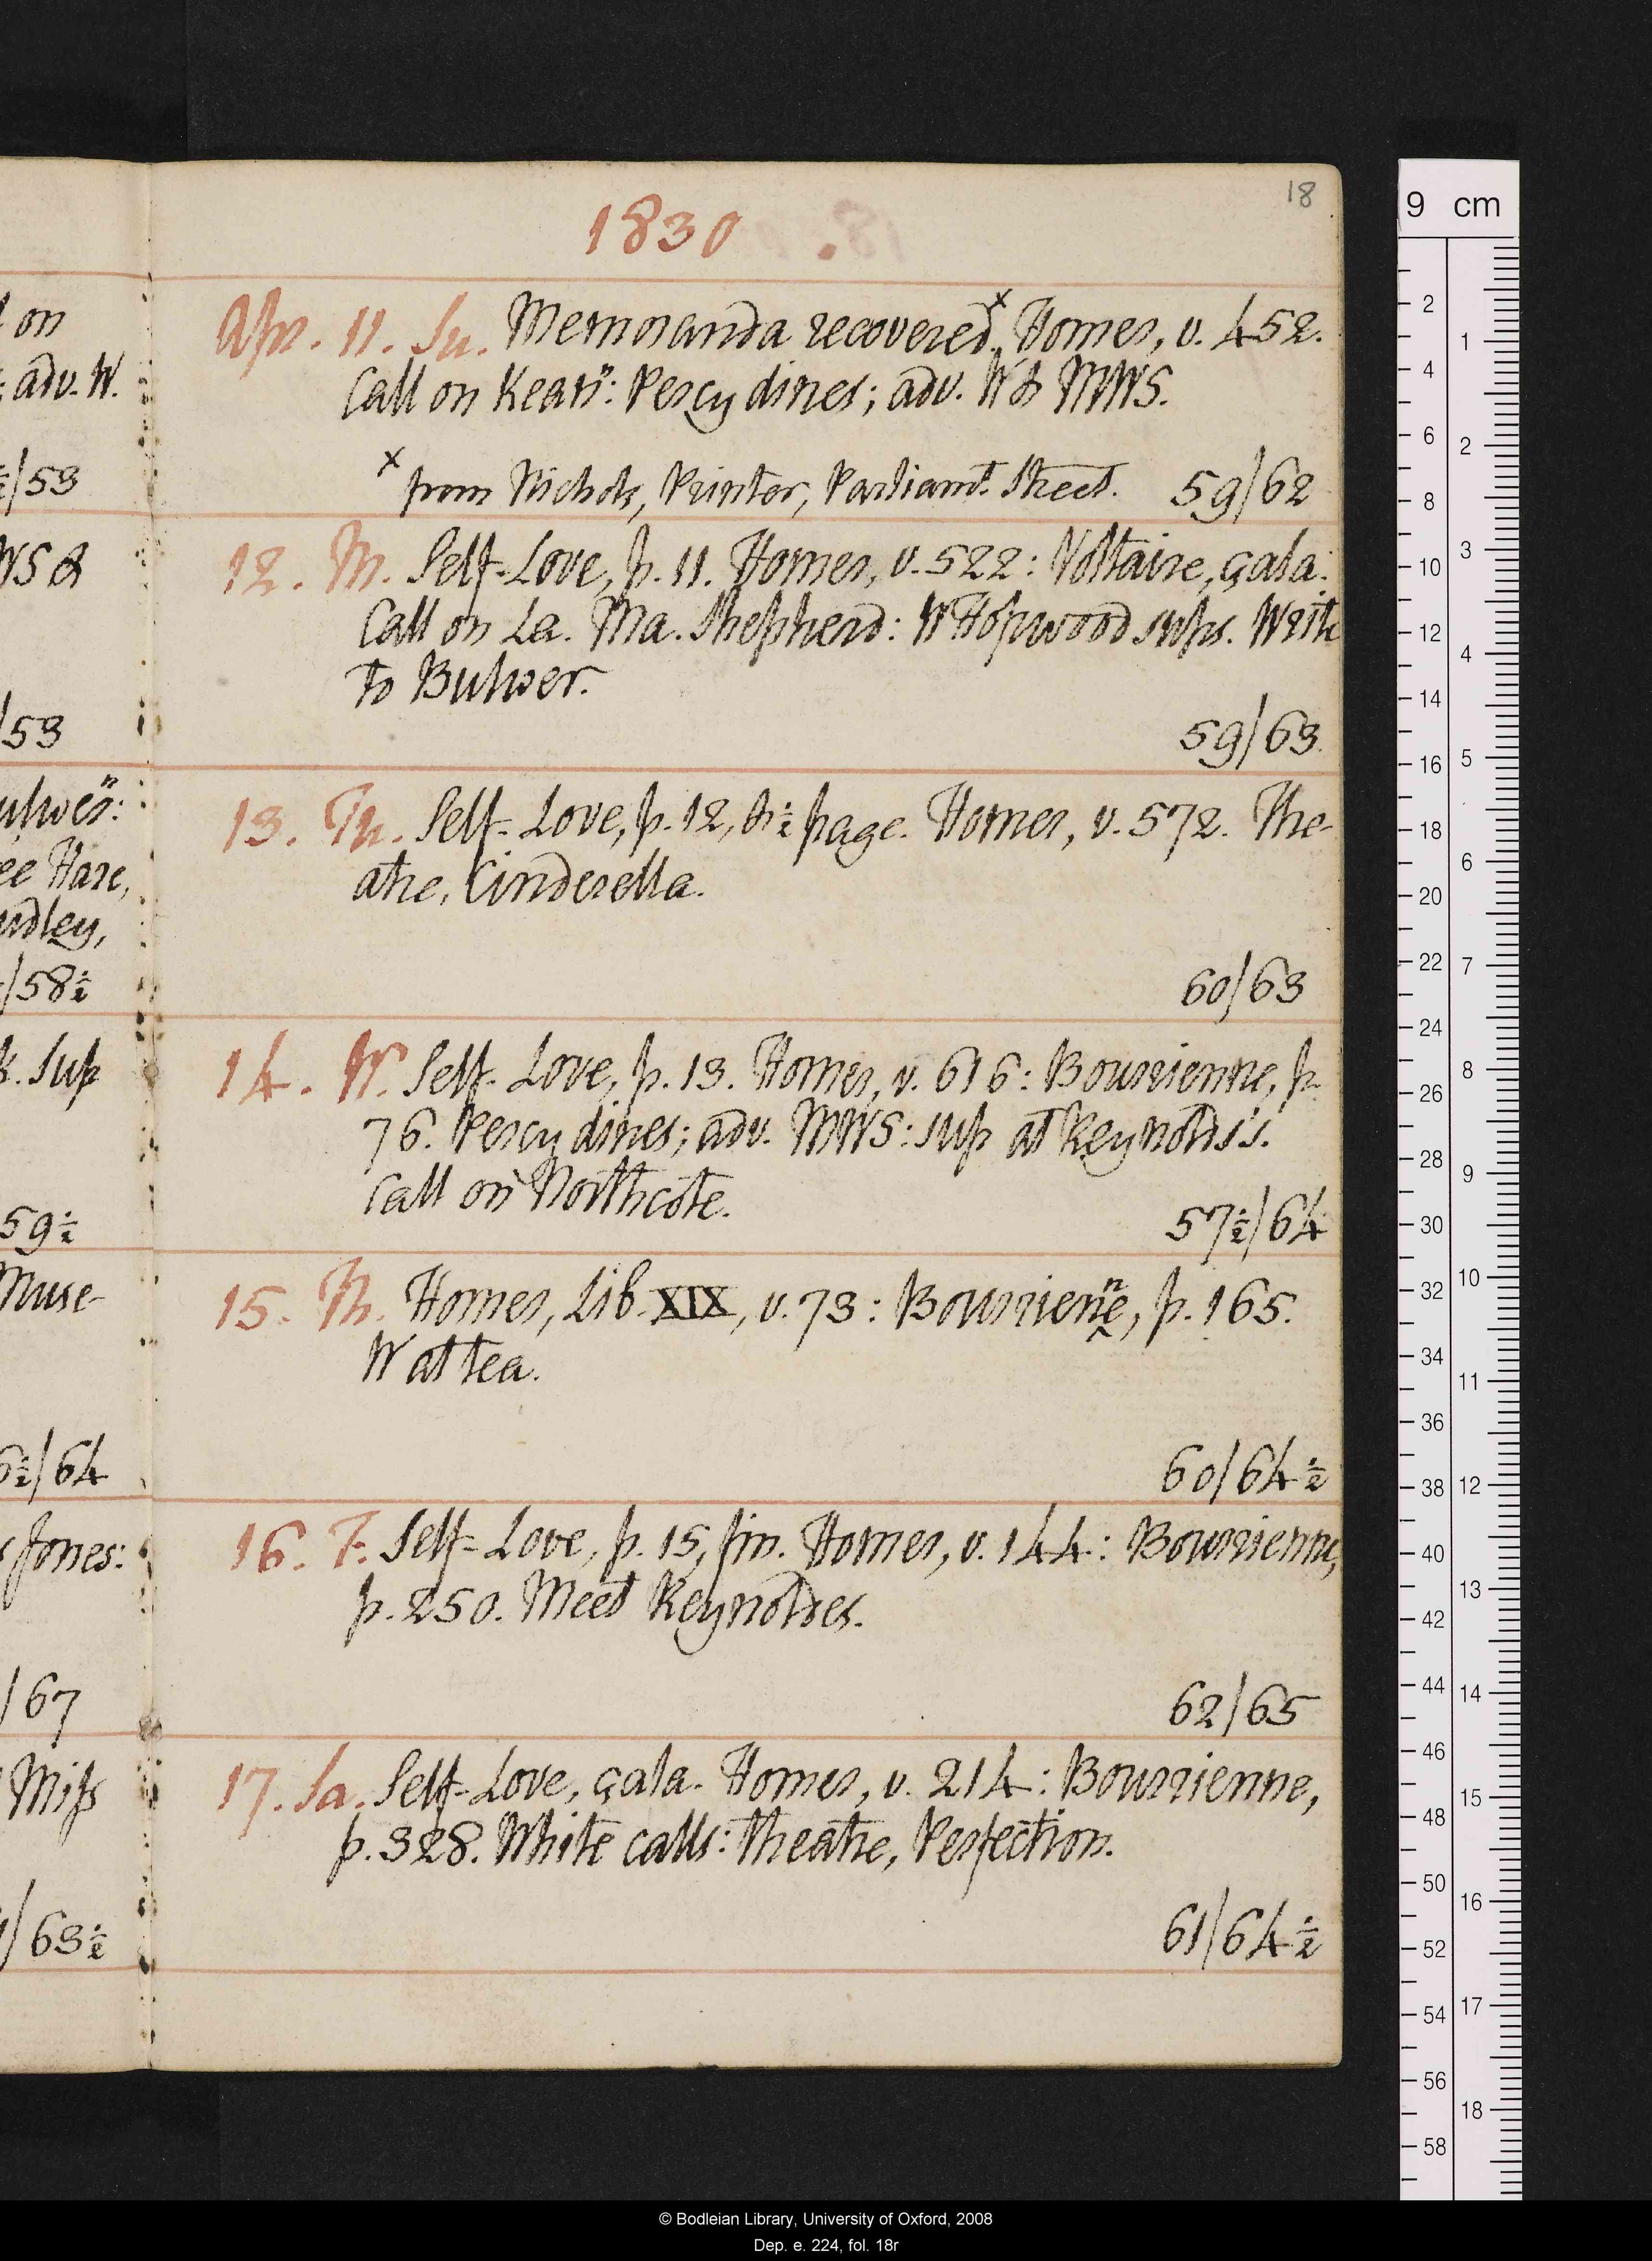 18
1830
on
adv. W.
/53
Apr. 11. Su. Memoranda recovered x. Homer, v. 452.
Call on Kean n: Percy dines; adv. W & MWS.
x from Nichols, Printer, Parliamt. Street. 59/62
WS &
/53
12. M. Self-Love, p. 11. Homer, v. 522: Voltaire, çala.
Call on La. Ma. Shepherd: W Hopwood sups. Write
to Bulwer.
59/63
Hare,
/58½
13. Tu. Self-Love, p. 12, ½ page. Homer, v. 572. The-
atre, Cinderella.
60/63
Sup
59½
14. W. Self-Love, p. 13. Homer, v. 616: Bourrienne, p.
76. Percy dines; adv. MWS: sup at Reynolds's.
Call on Northcote.
57½/64
Muse-
/64
15. Th. Homer, Lib. XIX, v. 73: Bourrienne, p. 165.
W at tea.
60/64½
Jones:
/67
16. F. Self-Love, p. 15, fin. Homer, v. 144: Bourrienne,
p. 250. Meet Reynoldses.
62/65
Miss
/63½
17. Sa. Self-Love, çala. Homer, v. 214: Bourrienne,
p. 328. White calls: Theatre, Perfection.
61/64½
9 cm
2
4
6
8
10
12
14
16
18
20
22
24
26
28
30
32
34
36
38
40
42
44
46
48
50
52
54
56
58
1
2
3
4
5
6
7
8
9
10
11
12
13
14
15
16
17
18
© Bodleian Library, University of Oxford, 2008
Dep. e. 224, fol. 18r